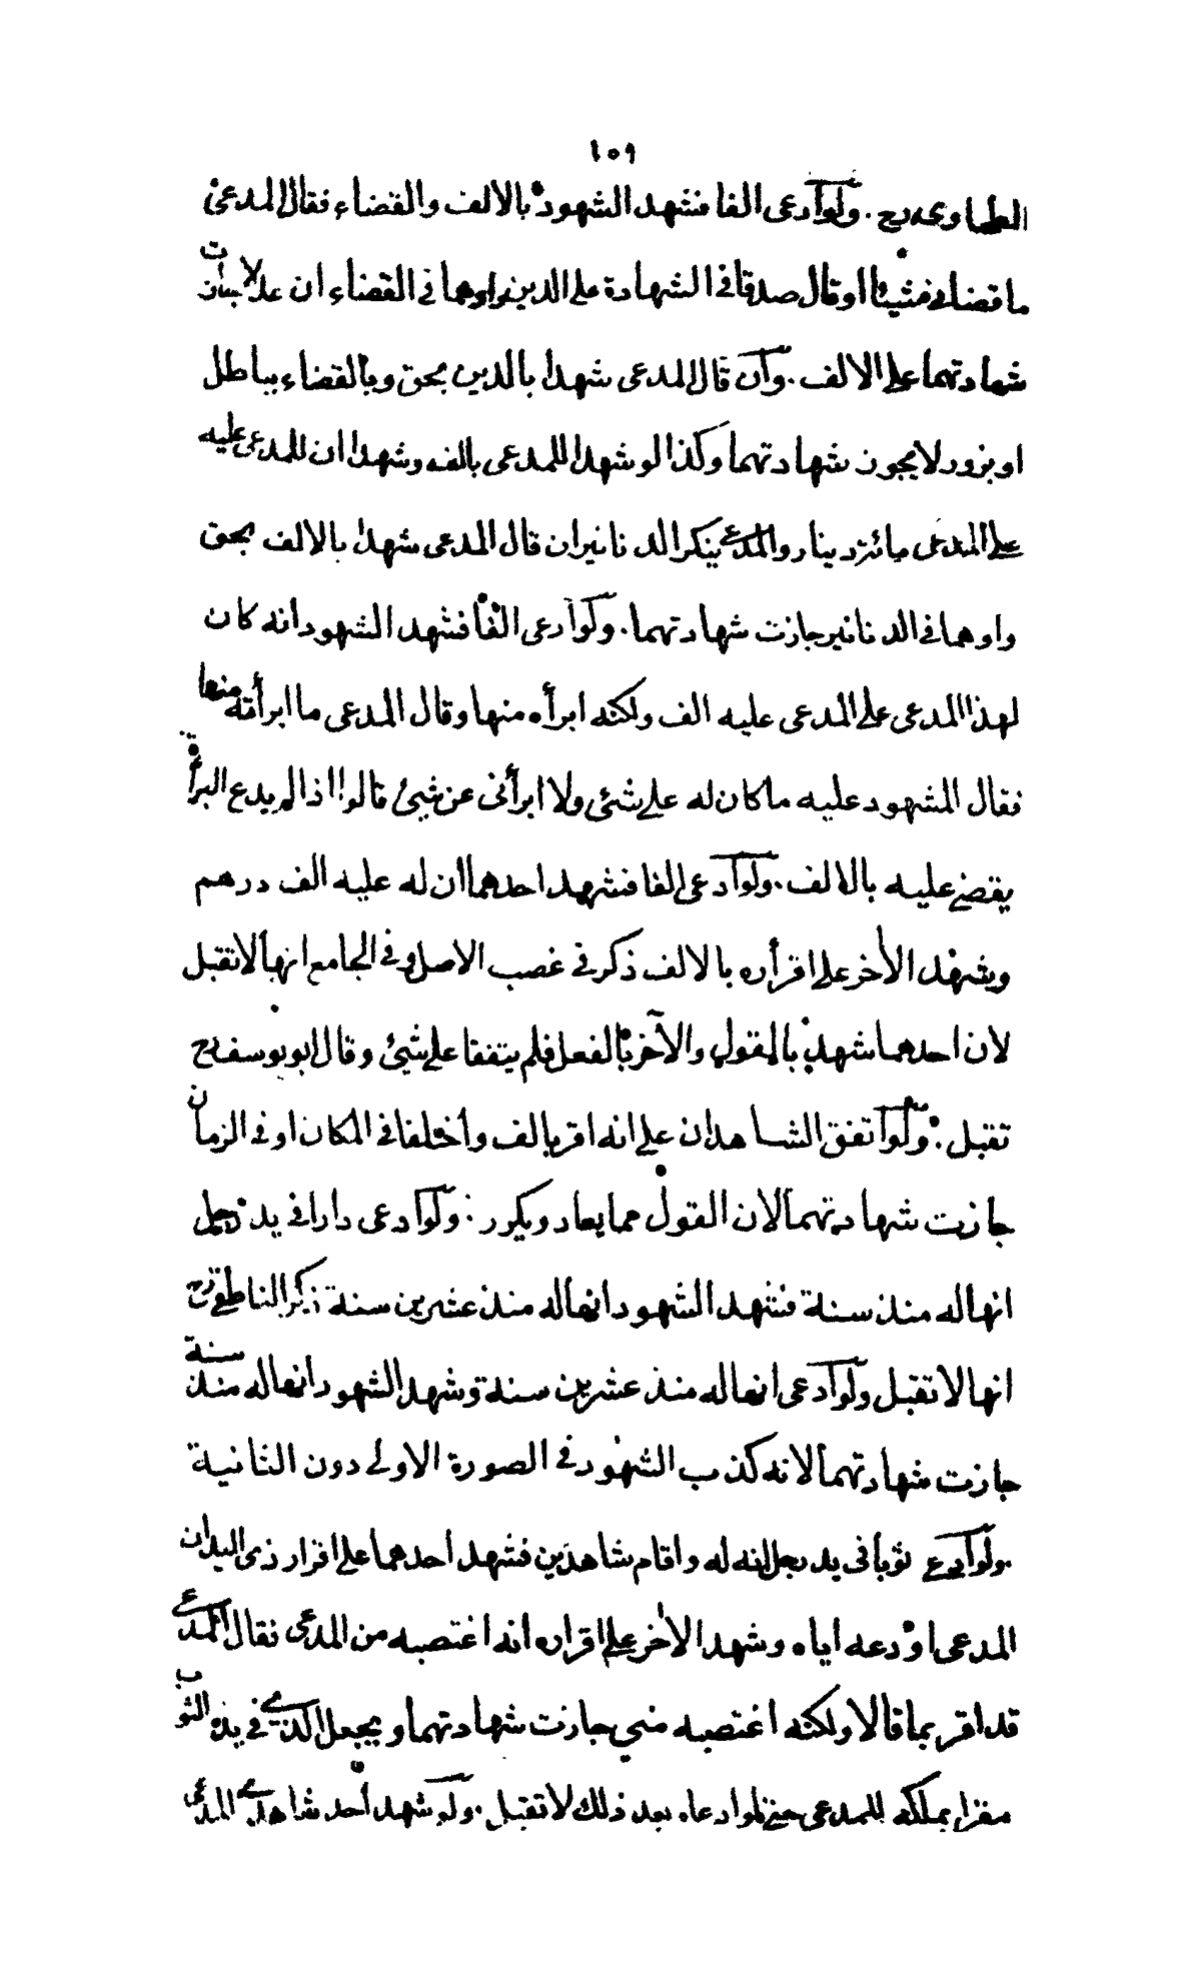 ١٠٩
الطحاوى رح . ولو ادعى الفا فشهد الشهود بالالف والقضاء فقال المدعى
ما قضانى شيئا او قال صدقا فى الشهادة على الدين واوهما فى القضاء ان عدلا جازت
شهادتهما على الالف . وان قال المدعى شهدا بالدين بحق وبالقضاء بباطل
او بزور لا يجوز شهادتهما وكذا لو شهدا للمدعى بالف وشهدا ان للمدعى عليه
على المدعى مائة دينار والمدعى ينكر الدنانير ان قال المدعى شهدا بالالف بحق
واوهما فى الدنانير جازت شهادتهما . ولو ادعى الفا فشهد الشهود انه كان
لهذا المدعى على المدعى عليه الف ولكنه ابرأه منها وقال المدعى ما ابرأته منها
فقال المشهود عليه ما كان له على شئ ولا ابرأنى عن شئ قالوا اذا لم يدع البرأة
يقضى عليه بالالف . ولو ادعى الفا فشهد احدهما ان له عليه الف درهم
وشهد الأخر على اقراره بالالف ذكر فى غصب الاصل وفى الجامع انها لا تقبل
لان احدهما شهد بالقول والآخر بالفعل فلم يتفقا على شئ وقال ابو يوسف رح
تقبل . ولو اتفق الشاهدان على انه اقر بالف واختلفا فى المكان او فى الزمان
جازت شهادتهما لان القول مما يعاد ويكرر . ولو ادعى دارا فى يد رجل
انها له منذ سنة فشهد الشهود انها له منذ عشرين سنة ذكر الناطفى رح
انها لا تقبل ولو ادعى انها له منذ عشرين سنة وشهد الشهود انها له منذ سنة
جازت شهادتهما لانه كذب الشهود فى الصورة الاولى دون الثانية
ولو ادعى ثوبا فى يد رجل انه له واقام شاهدين فشهد احدهما على اقرار ذى اليد ان
المدعى اودعه اياه وشهد الأخر على اقراره انه اغتصبه من المدعى فقال المدعى
قد اقر بما قالا ولكنه اغتصبه منى جازت شهادتهما ويجعل الذى فى يده الثوب
مقرا بملكه للمدعى حتى لو ادعاه بعد ذلك لا تقبل . ولو شهد احد شاهدى المدعى